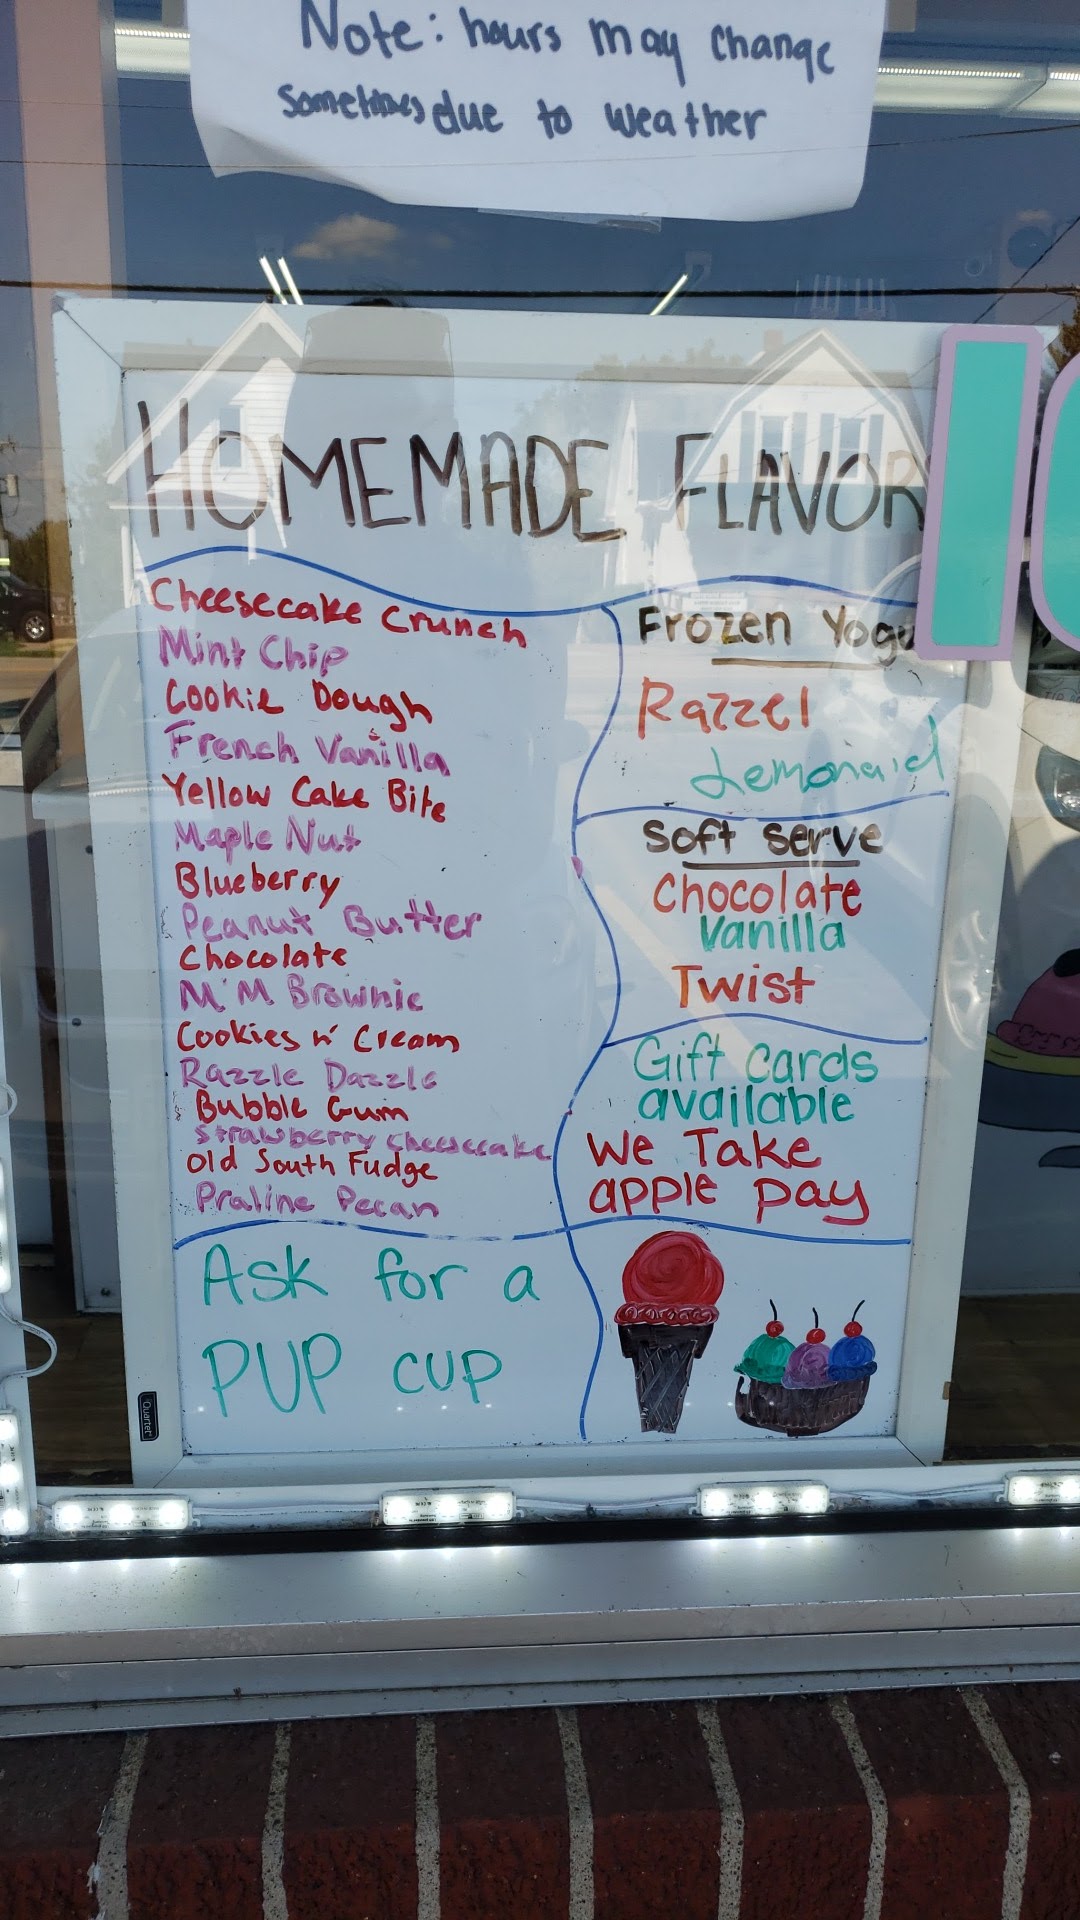 Note: hours may change
sometimes due to weather
HOMEMADE FLAVOR
Cheesecake Crunch
Mint Chip
Cookie Dough
French Vanilla
Yellow Cake Bite
Maple Nut
Blueberry
Peanut Butter
Chocolate
M'M Brownie
Cookies n' Cream
Razzle Dazzle
Bubble Gum
Strawberry Cheesecake
Old South Fudge
Praline Pecan
Ask for a
PUP CUP
Frozen Yogu
Razzel
Lemonaid
Soft serve
Chocolate
Vanilla
Twist
Gift cards
available
We Take
apple pay
Quartet